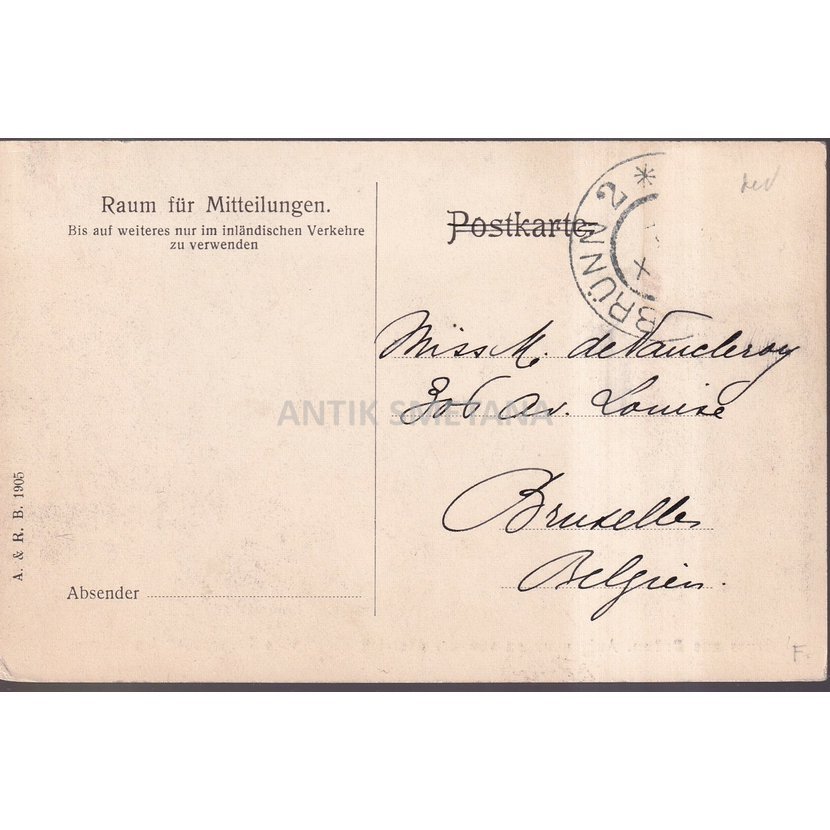 Raum für Mitteilungen.
Bis auf weiteres nur im inländischen Verkehre
zu verwenden
A. & R. B. 1905
Absender
Postkarte
BRÜNN 2
Miss M. de Vaucleroy
Av. Louise
Bruxelles
Belgien.
ANTIK SMETANA
F.